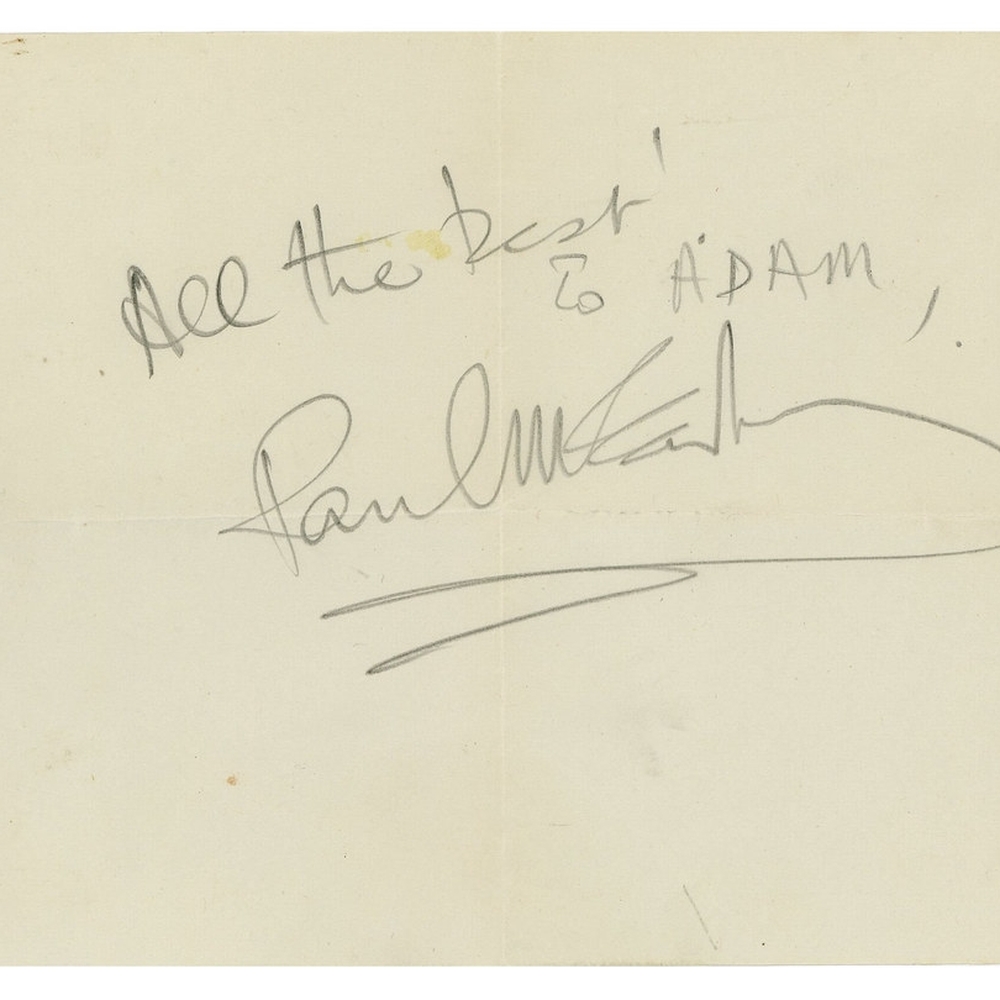 All the best'
to ADAM,
Paul McCartney